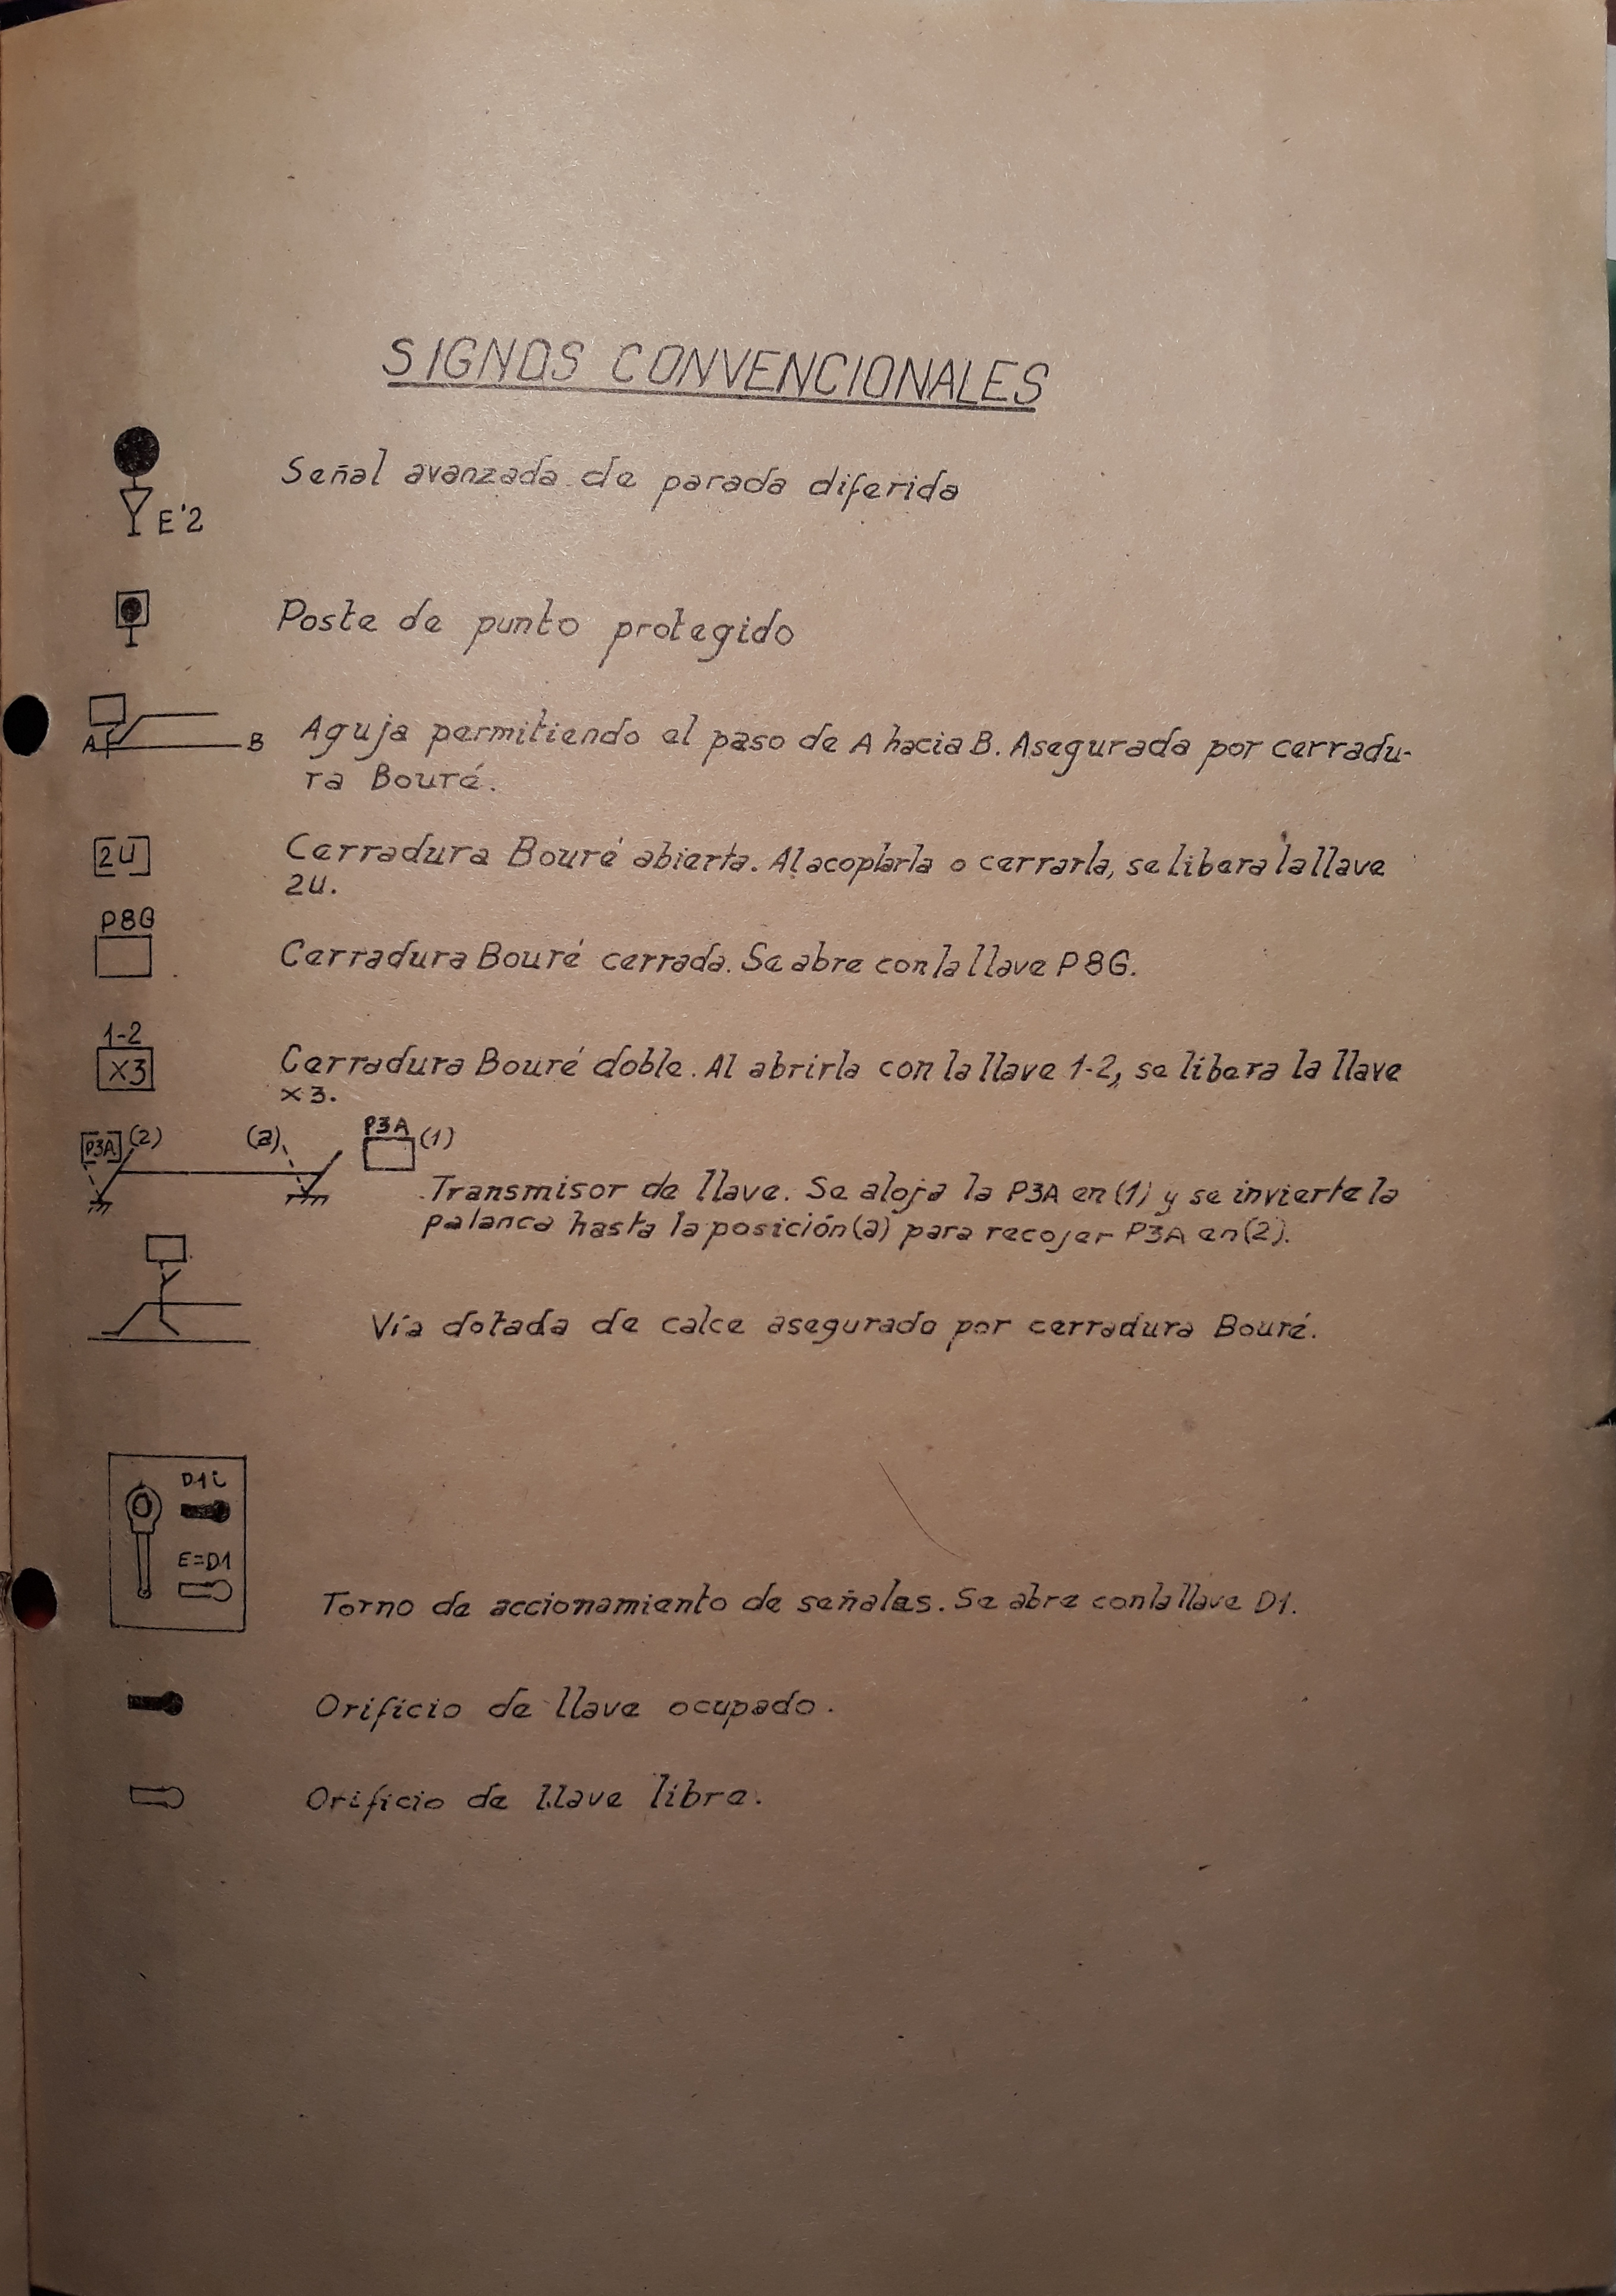 SIGNOS CONVENCIONALES
Señal avanzada de parada diferida
E'2
Poste de punto protegido
A B Aguja permitiendo el paso de A hacia B. Asegurada por cerradu-
ra Bouré.
2U Cerradura Bouré abierta. Al acoplarla o cerrarla, se libera la llave
2U.
P8G
Cerradura Bouré cerrada. Se abre con la llave P8G.
1-2
X3 Cerradura Bouré doble. Al abrirla con la llave 1-2, se libera la llave
x3.
P3A (2) (a) P3A (1)
Transmisor de llave. Se aloja la P3A en (1) y se invierte la
palanca hasta la posición (a) para recojer P3A en (2).
Vía dotada de calce asegurado por cerradura Bouré.
D1i
E=D1
Torno de accionamiento de señales. Se abre con la llave D1.
Orificio de llave ocupado.
Orificio de llave libre.